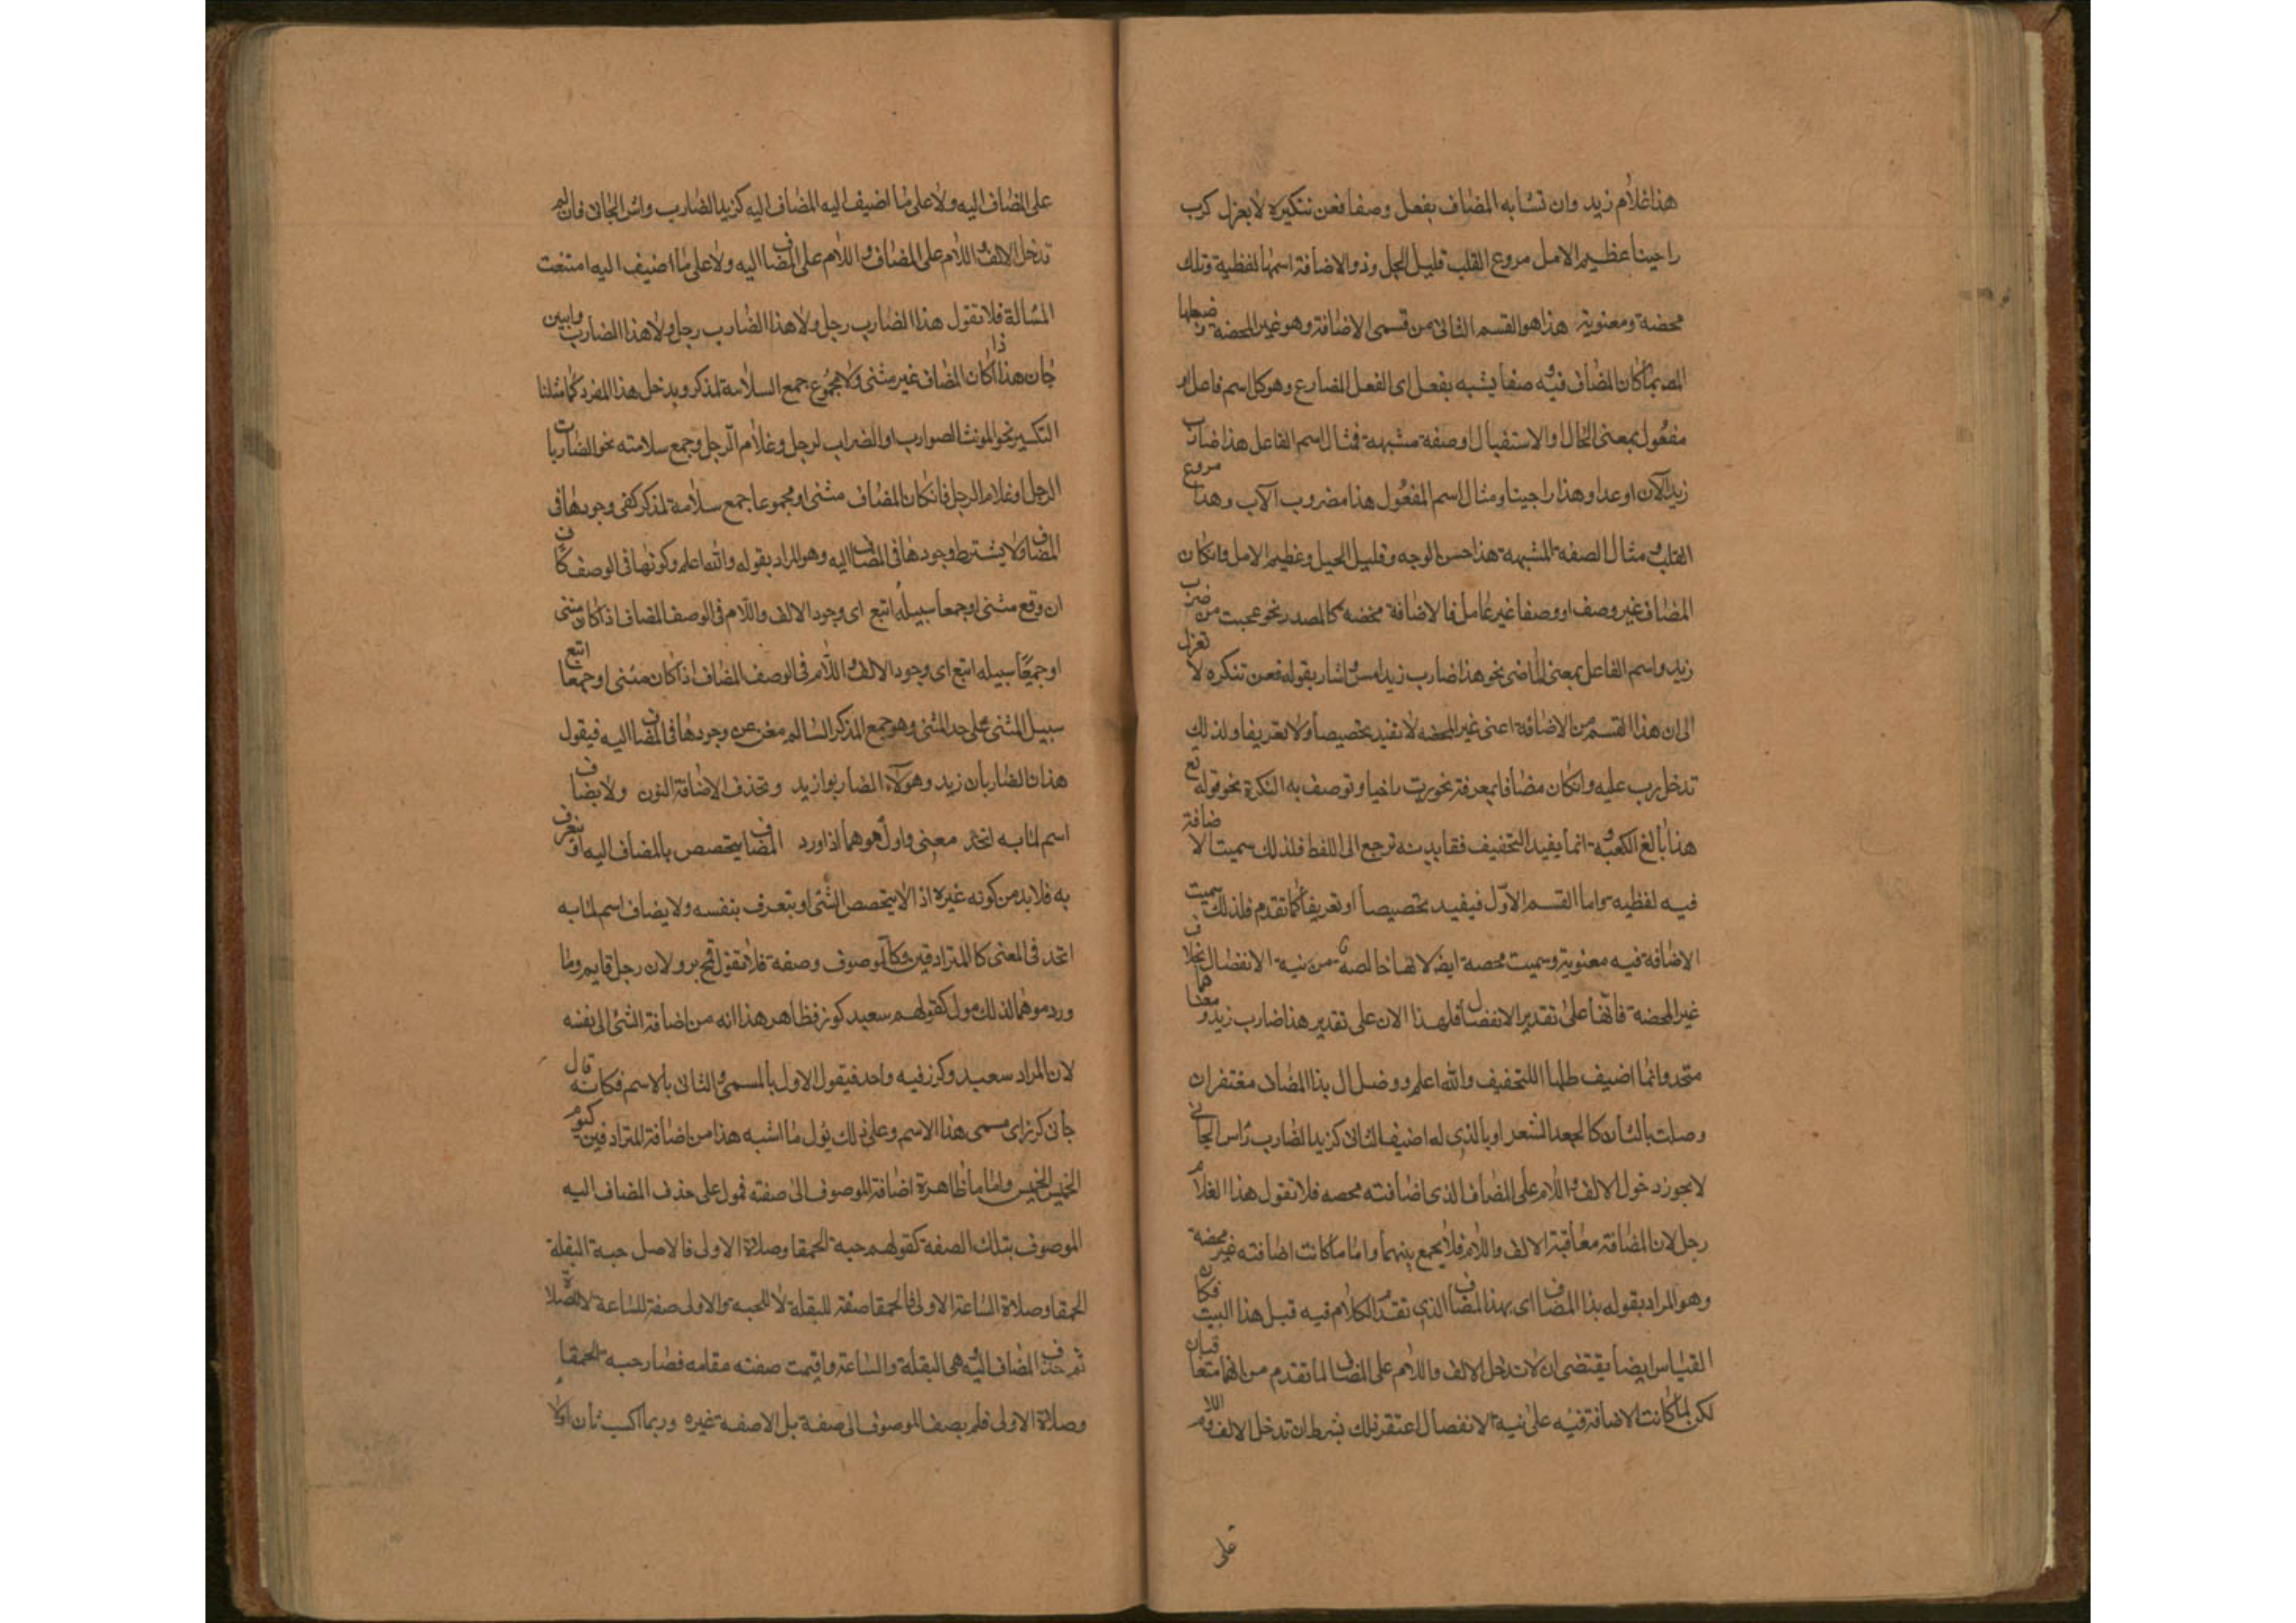 هذا غلام زيد وان تشابه المضاف بفعل وصفا فعن تنكيره لا يعزل كرب
راجينا عظيم الامل مروع القلب قليل الحيل وذو الاضافة اسمها لفظية وتلك
محضة ومعنوية هذا هو القسم الثانى من قسمى الاضافة وهو غير المحضة وضبطها
المص بما كان المضاف فيه وصفا يشبه بفعل اى الفعل المضارع وهو كل اسم فاعل او
مفعول بمعنى الحال او الاستقبال او صفة مشبهة فمثال اسم الفاعل هذا ضارب
زيد الآن او غدا وهذا راجينا ومثال اسم المفعول هذا مضروب الآب وهذا مروع
القلب ومثال الصفة المشبهة هذا حسن الوجه وقليل الحيل وعظيم الامل فان كان
المضاف غير وصف او وصفا غير عامل فالاضافة محضه كالمصدر نحو عجبت من ضرب
زيد واسم الفاعل بمعنى الماضى نحو هذا ضارب زيد امس واشار بقوله فعن تنكره لا تعزل
الى ان هذا القسم من الاضافة اعنى غير المحضه لا تفيد تخصيصا ولا تعريفا ولذلك
تدخل رب عليه وان كان مضافا بمعرفة نحو رب راجينا وتوصف به النكرة نحو قوله تع
هذا بالغ الكعبه وانما يفيد التخفيف ففايدته ترجع الى اللفظ فلذلك سميت الاضافة
فيه لفظيه واما القسم الاول فيفيد تخصيصا او تعريفا كما تقدم فلذلك سميت
الاضافة فيه معنوية وسميت محصة ايضا لانها خالصة من نية الانفصال بخلاف
غير المحضة فانها على تقدير الانفصال فلهذا الان على تقدير هذا ضارب زيد ومعناهما
متحد وانما اضيف طلبا اللتخفيف والله اعلم ووصل ال بذا المضاف مغتفر ان
وصلت بالثان كالجعد الشعر او بالذى له اضيف الثانى كزيد الضارب راس الجانى
لا يجوز دخول الالف واللام على المضاف الذى اضافته محصه فلا تقول هذا الغلام
رجل لان المضافة معاقبة الالف واللام فلا يجمع بينهما واما ما كانت اضافته غير محضة
وهو المراد بقوله بذا المضاف اى بهذا المضاف الذى تقدم الكلام فيه قبل هذا البيت فكان
القياس ايضا يقتضى ان لا تدخل الالف واللام على المضاف لما تقدم من انهما متعاقبان
لكن لما كانت الاضافة فيه على نية الانفصال اعتقر ذلك بشرط ان تدخل الالف واللام
على
على المضاف اليه ولا على ما اضيف اليه المضاف اليه كزيد الضارب راس الجانى فان لم
تدخل الالف واللام على المضاف واللام على المضاف اليه ولا على ما اضيف اليه امتنعت
المسالة فلا تقول هذا الضارب رجل ولا هذا الضارب رجل ولا هذا الضارب وابين
جان هذا اذا كان المضاف غير مثنى ولا مجموع جمع السلامة لمذكر ويدخل هذا المفرد كما مثلنا
التكسير نحو المونث الصوارب او الضراب لرجل وغلام الرجل وجمع سلامته نحو الضاربات
الرجل او غلام الرجل فان كان المضاف مثنى او مجموعا جمع سلامة لمذكر كفى وجودها فى
المضاف ولا يشترط وجودها فى المضاف اليه وهو المراد بقوله والله اعلم وكونها فى الوصف كاف
ان وقع مثنى او جمعا سبيله اتبع اى وجود الالف واللام فى الوصف المضاف اذا كان مثنى
او جمعا سبيله اتبع اى وجود الالف واللام فى الوصف المضاف اذا كان مثنى او جمعا اتبع
سبيل المثنى على حد المثنى وهو جمع المذكر السالم مغن عن وجودها فى المضاف اليه فيقول
هذان الضاربان زيد وهولاء الضاربوا زيد وتحذف الاضافة النون ولا يضاف
اسم لما به اتحد معنى واول موهما اذا ورد المضاف يتخصص بالمضاف اليه او يتعرف
به فلا بد من كونه غيره اذ الا يتخصص الشئ او يتعرف بنفسه ولا يضاف اسم لما به
اتحد فى المعنى كالمترادفين وكالموصوف وصفة فلا تقول قمح بر ولان رجل قايم وما
ورد موهما لذلك مول كقولهم سعيد كوز فظاهر هذا انه من اضافة الشئ الى نفسه
لان المراد سعيد وكرز فيه واحد فيقول الاول بالمسمى والثانى بالاسم فكانه قال
جانى كرز اى مسمى هذا الاسم وعلى ذلك يول ما اشبه هذا من اضافة المترادفين كيوم
الخميس الخميس واما ما ظاهرة اضافة الموصوف الى صفته فمول على حذف المضاف اليه
الموصوف بتلك الصفة كقولهم حبة الحمقا وصلاة الاولى فالاصل حبة البقلة
الحمقا وصلاة الساعة الاولى فالحمقا صفة للبقلة لا للحبه والاولى صفة للساعة لا للصلاة
ثم حذف المضاف اليه وهى البقلة والساعة واقيمت صفته مقامه فصار حبة الحمقا
وصلاة الاولى فلم يصف الموصوف الى صفة بل الا صفة غيره وربما اكسب ثان اولا